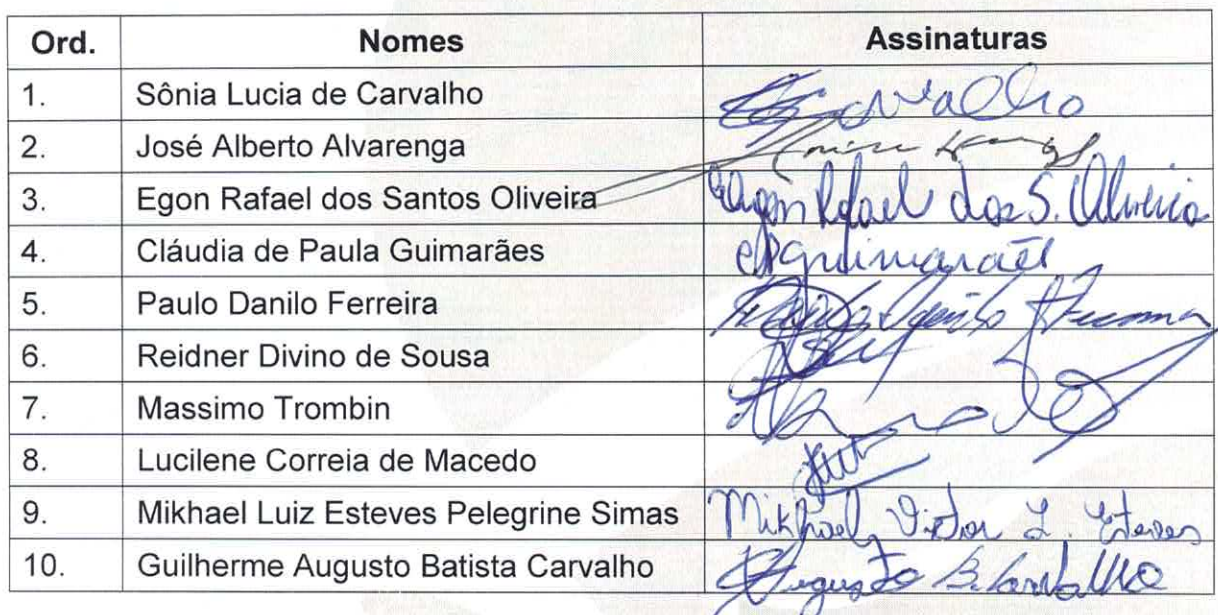 Ord. Nomes Assinaturas
1. Sônia Lucia de Carvalho Carvalho
2. José Alberto Alvarenga
3. Egon Rafael dos Santos Oliveira Egon Rafael dos S. Oliveira
4. Cláudia de Paula Guimarães CPGuimarães
5. Paulo Danilo Ferreira Paulo Danilo Ferreira
6. Reidner Divino de Sousa
7. Massimo Trombin
8. Lucilene Correia de Macedo
9. Mikhael Luiz Esteves Pelegrine Simas Mikhael Victor L. Esteves
10. Guilherme Augusto Batista Carvalho Augusto B. Carvalho